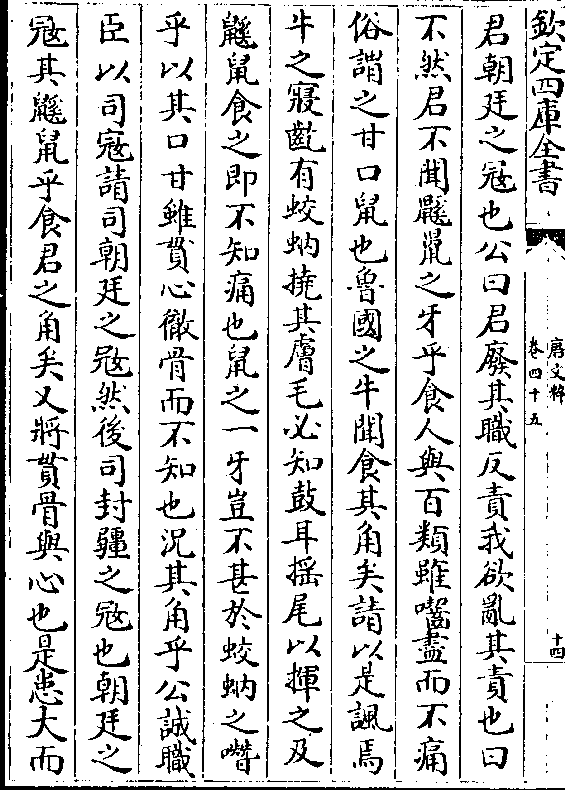 欽定四庫全書
唐文粹
卷四十五
十四
君朝廷之冦也公曰君廢其職反責我欲亂其責也曰
不然君不聞鼷鼠之牙乎食人與百類雖嚙盡而不痛
俗謂之甘口鼠也魯國之牛聞食其角矣請以是諷焉
牛之寢齕有蛟蚋撓其膚毛必知鼓耳摇尾以揮之及
鼷鼠食之即不知痛也鼠之一牙豈不甚於蛟蚋之噆
乎以其口甘雖貫心徹骨而不知也況其角乎公誠職
臣以司冦請司朝廷之冦然後司封疆之冦也朝廷之
冦其鼷鼠乎食君之角矣又將貫骨與心也是患大而